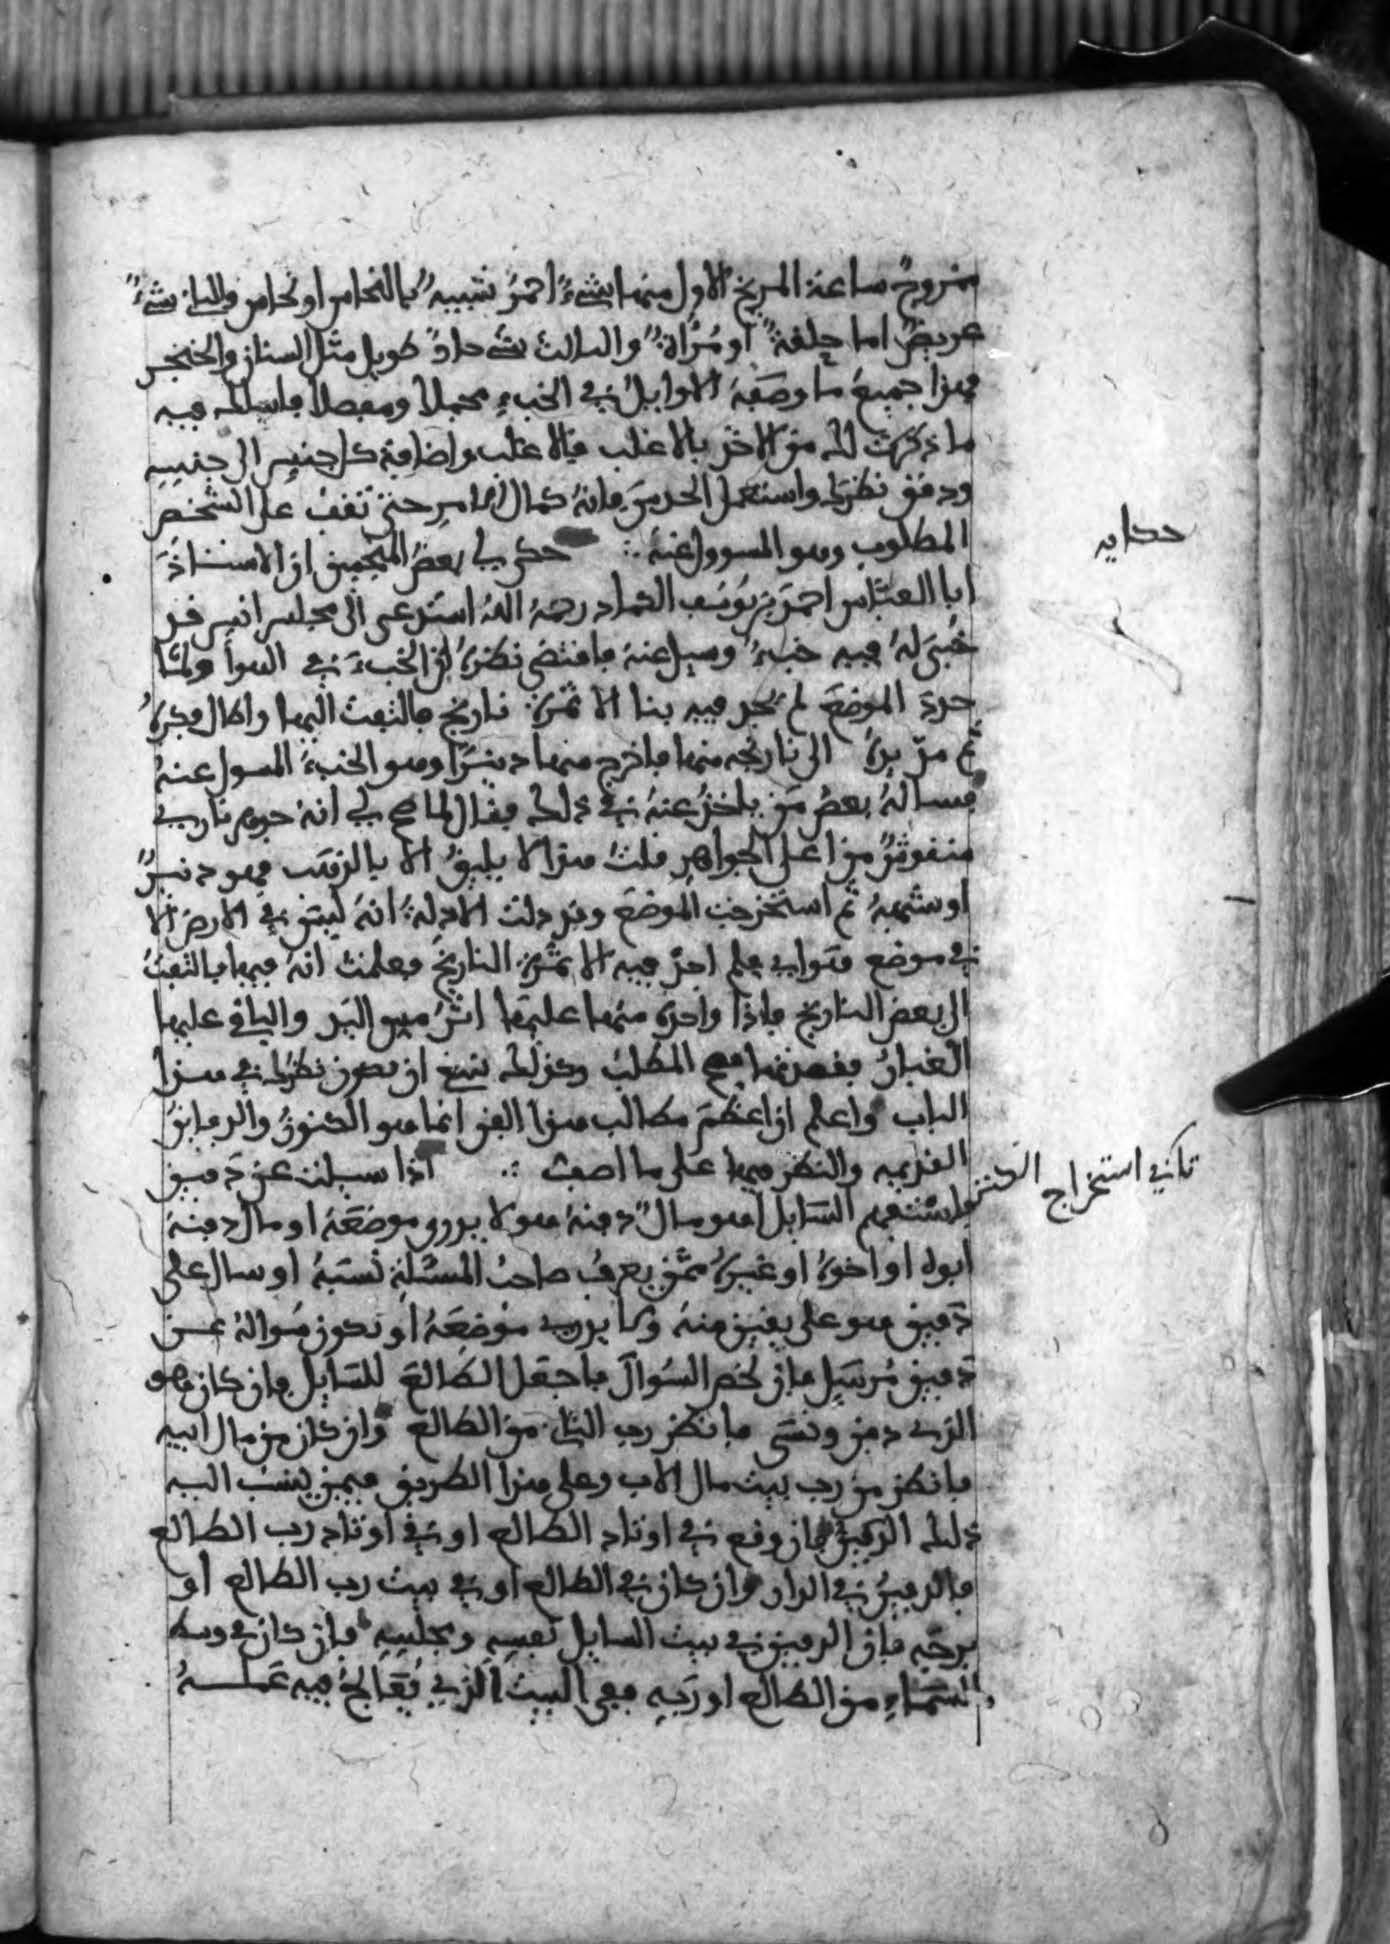 مخروج ساعة المريخ الاول منها شيء احمر شبيه بالنحاس او نحاس والثاني شيء
عريض اما حلقة او مراة والثالث شيء حاد طويل مثل السنان والخنجر
فهذا جميع ما وصفه الاوايل في الخبء مجملا ومفصلا فاسلك فيه
ما ذكرت لك من الاخذ بالاغلب فالاغلب واضافة كل جنس الى جنسه
ودقق نظرك واستعمل الحدس فانه كمال الامر حتى تقف على الشخص
المطلوب وهو المسوول عنه ∴ حكى لي بعض المنجمين ان الاستاذ
ابا العباس احمد بن يوسف الكماد رحمه الله استدعي الى مجلس انس قد
خبئ له فيه خبء وسيل عنه فاقتضى نظره ان الخبء في الهوا ولما
حدد الموضع لم يجد فيه بنا الا ثمرة نارنج فالتفت اليها واطال فكره
ثم مد يده الى نارنجه منها فاخرج منها دينرا وهو الخبء المسول عنه
فساله بعض من ياخذ عنه في ذلك فقال لما صح لي انه جوهر ناري
منقوش من اعلى الجواهر قلت هذا لا يليق الا بالذهب فهو دينر
او شبهه ثم استخرجت الموضع وقد دلت الادلة انه ليس في الارض الا
في موضع هوايي فلم اجد فيه الا ثمرة النارنج فعلمت انه فيها فالتفت
الى بعض النارنج فاذا واحدة منها عليها اثر مس اليد والباقي عليها
الغبار فقصدتها فصح المطلب وكذلك ينبغي ان يكون نظرك في هذا
الباب واعلم ان اعظم مطالب هذا الفن انما هو الكنوز والدفاين
القديمه والنظر فيها على ما اصف ∴ اذا سيلت عن دفين
فاستفهم السايل اهو مال دفنه هو لا يدري موضعه او مال دفنه
ابوه او اخوه او غيره ممن يعرف صاحب المسئلة نسبه او سال على
دفين هو على يقين منه ولا يدري موضعه او تكون سواله عن
دفين مرسل فان لخص السوال فاجعل الطالع للسايل فان كان هو
الذي دفن ونسي فانظر رب الثاني من الطالع وان كان من مال ابيه
فانظر من رب بيت مال الاب وعلى هذا الطريق فيمن ينسب اليه
ذلك الدفين فان وقع في اوتاد الطالع او في اوتاد رب الطالع
فالدفين في الدار وان كان في الطالع او في بيت رب الطالع او
برجه فان الدفين في بيت السايل نفسه ومجلسه فان كان في وسط
السماء من الطالع او ربه ففي البيت الذي يعالج فيه عمله
حكايه
تاتي استخراج الكنز